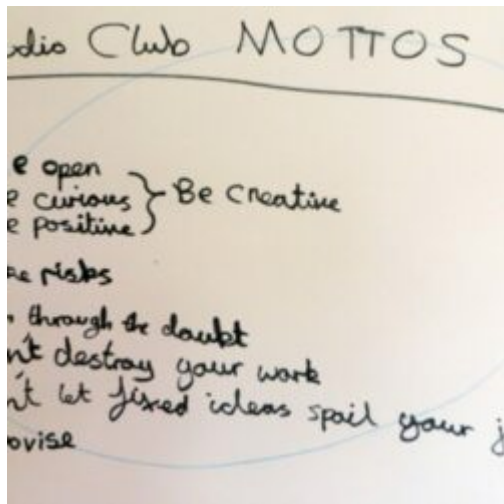 dio Club MOTTOS
e open
e curious } Be creative
e positive
ke risks
through the doubt
n't destroy your work
n't let fixed ideas spoil your j
ovise